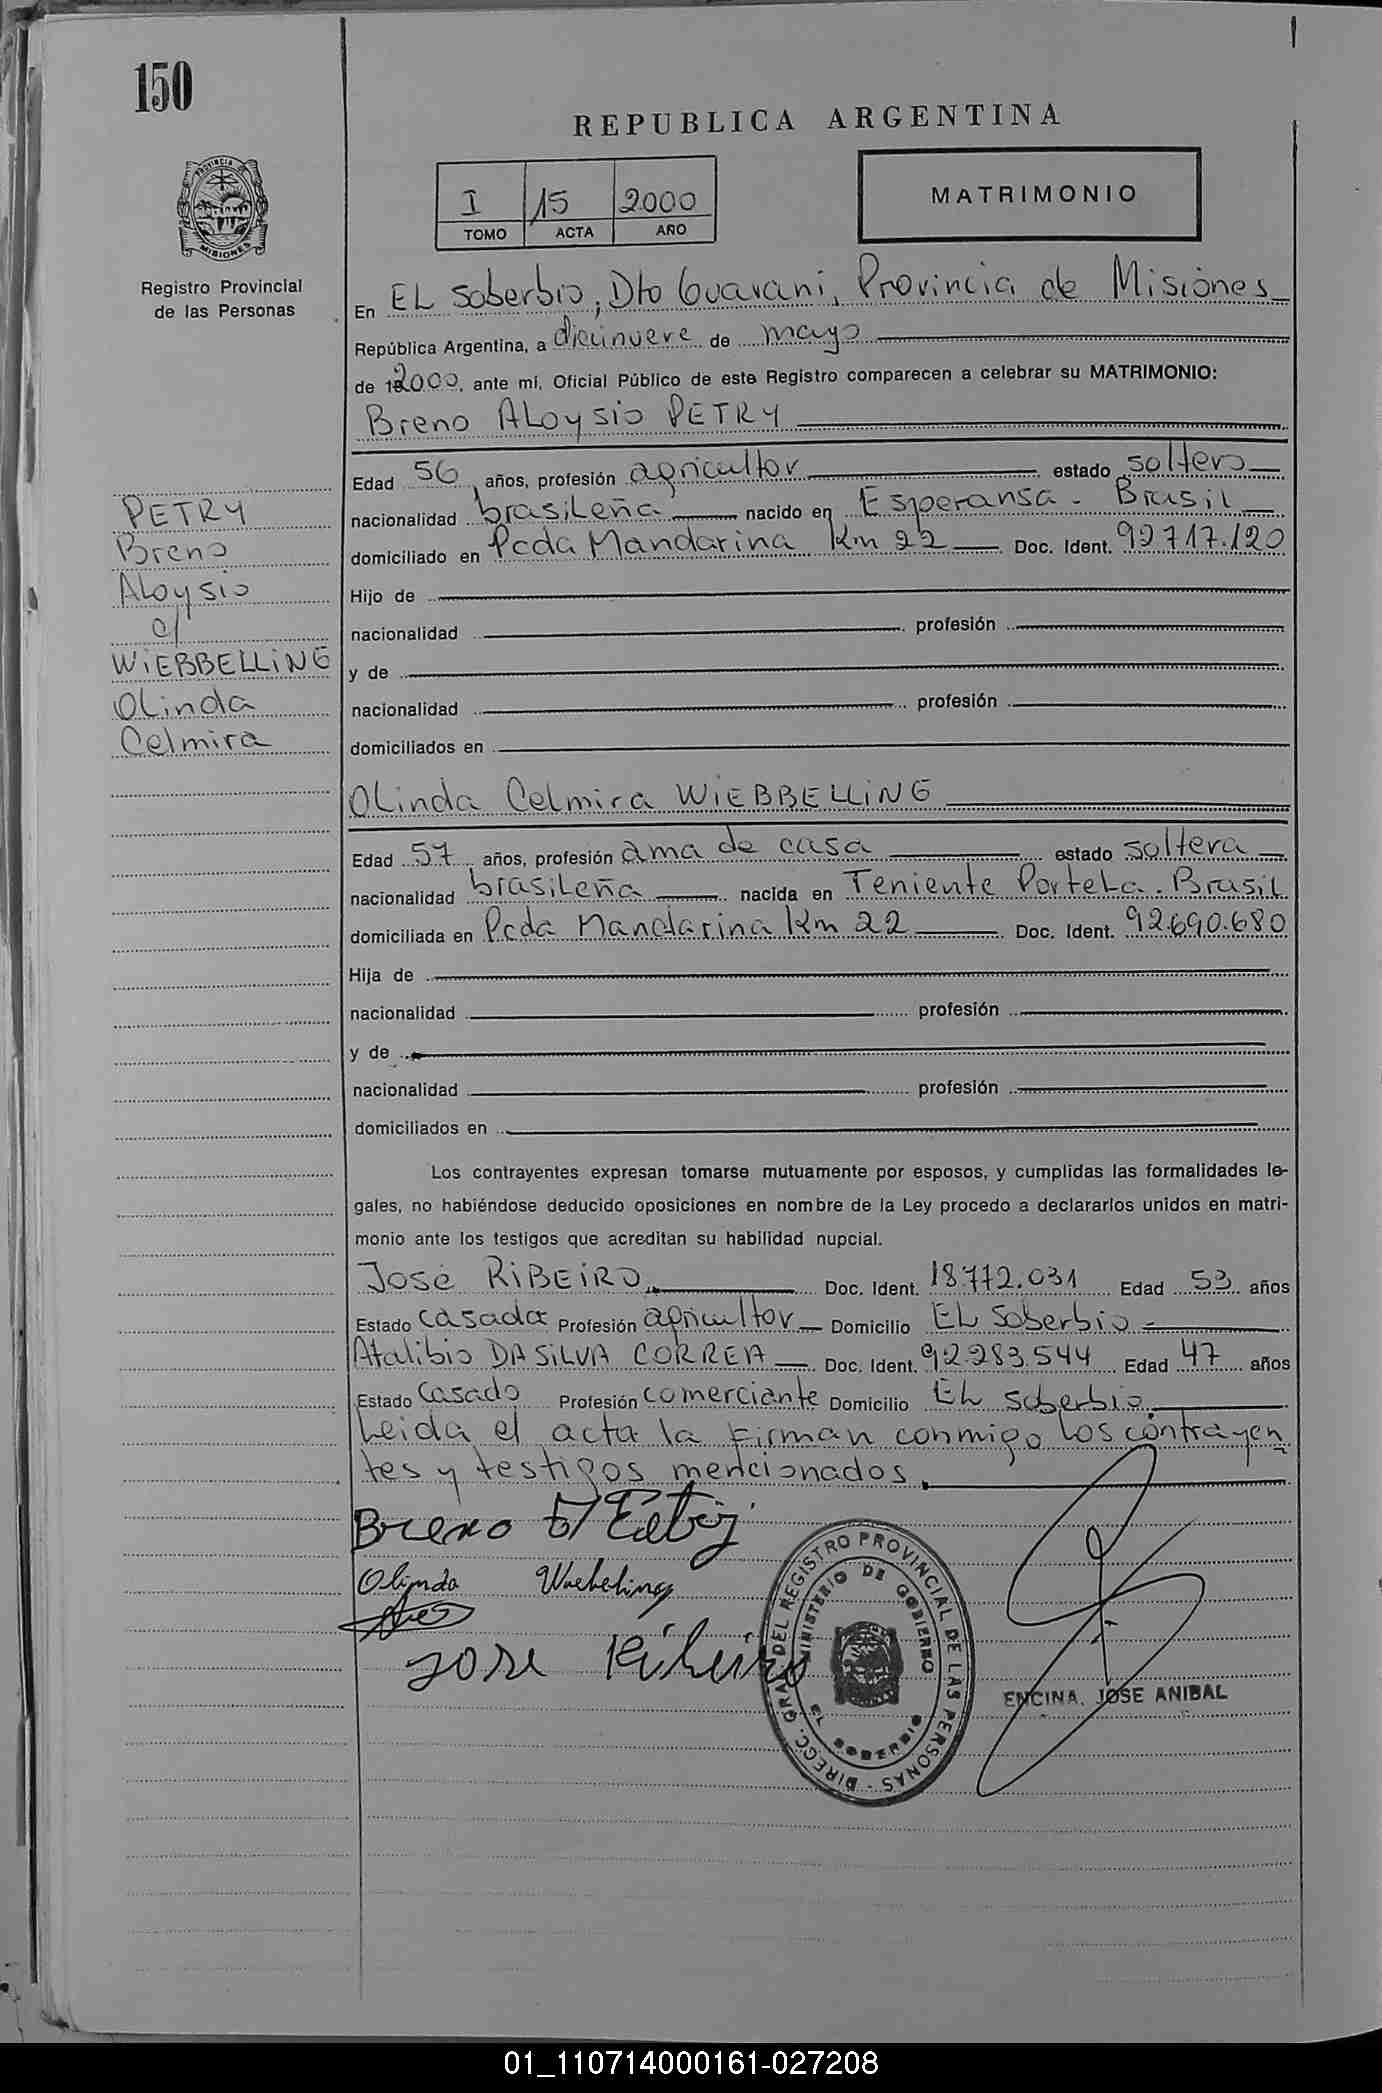 150
REPUBLICA ARGENTINA
I 15 2000
TOMO ACTA AÑO
MATRIMONIO
PROVINCIA DE
MISIONES
Registro Provincial
de las Personas
En EL Soberbio, Dto Guarani, Provincia de Misiones
República Argentina, a diecinueve de mayo
de 2000, ante mí, Oficial Público de este Registro comparecen a celebrar su MATRIMONIO:
Breno ALoysio PETRY
Edad 56 años, profesión agricultor estado soltero
nacionalidad brasileña nacido en Esperansa - Brasil
domiciliado en Pcda Mandarina Km 22 Doc. Ident. 92717.120
Hijo de
nacionalidad profesión
y de
nacionalidad profesión
domiciliados en
PETRY
Breno
ALoysio
c/
WiEBBELLiNG
OLinda
Celmira
OLinda Celmira WiEBBELLiNG
Edad 57 años, profesión ama de casa estado soltera
nacionalidad brasileña nacida en Teniente Portela. Brasil
domiciliada en Pcda Mandarina Km 22 Doc. Ident. 92.690.680
Hija de
nacionalidad profesión
y de
nacionalidad profesión
domiciliados en
Los contrayentes expresan tomarse mutuamente por esposos, y cumplidas las formalidades le-
gales, no habiéndose deducido oposiciones en nombre de la Ley procedo a declararlos unidos en matri-
monio ante los testigos que acreditan su habilidad nupcial.
José RiBEiRO Doc. Ident. 18.772.031 Edad 53 años
Estado casado Profesión agricultor Domicilio EL Soberbio
Atalibio DA SiLVA CORREA Doc. Ident. 92.283.544 Edad 47 años
Estado casado Profesión comerciante Domicilio EL Soberbio
Leida el acta la firman conmigo los contrayen
tes y testigos mencionados.
Breno
Olinda
Jose Ribeiro
DIRECC. GRAL DEL REGISTRO PROVINCIAL DE LAS PERSONAS
MINISTERIO DE GOBIERNO
EL SOBERBIO
ENCINA, JOSE ANIBAL
01_110714000161-027208